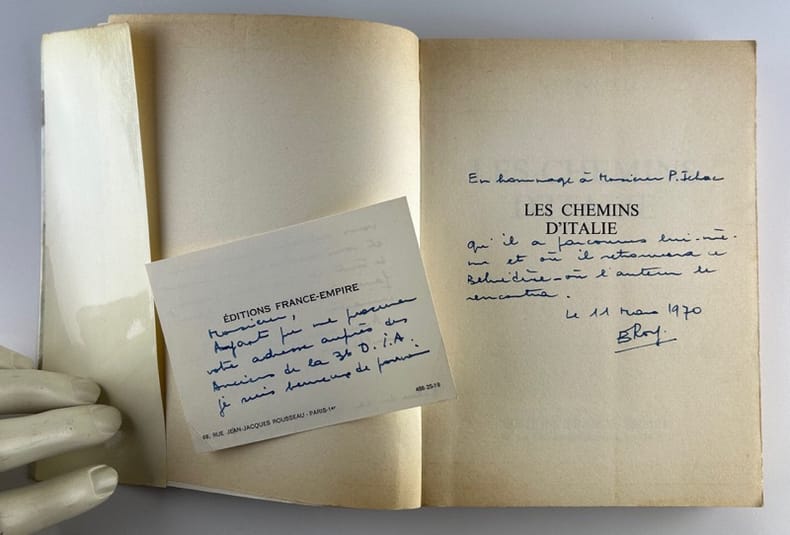 ÉDITIONS FRANCE-EMPIRE
Monsieur,
Ayant pu me procurer
votre adresse auprès des
Anciens de la 3e D.I.A.
je suis heureux de pouvoir
68, RUE JEAN-JACQUES ROUSSEAU - PARIS-1er
488-25-19
En hommage à Monsieur P. Ichac
LES CHEMINS
D'ITALIE
qu'il a parcourus lui-mê-
me et où il retrouvera ce
Belvédère - où l'auteur le
rencontra.
Le 11 Mars 1970
BRoy.